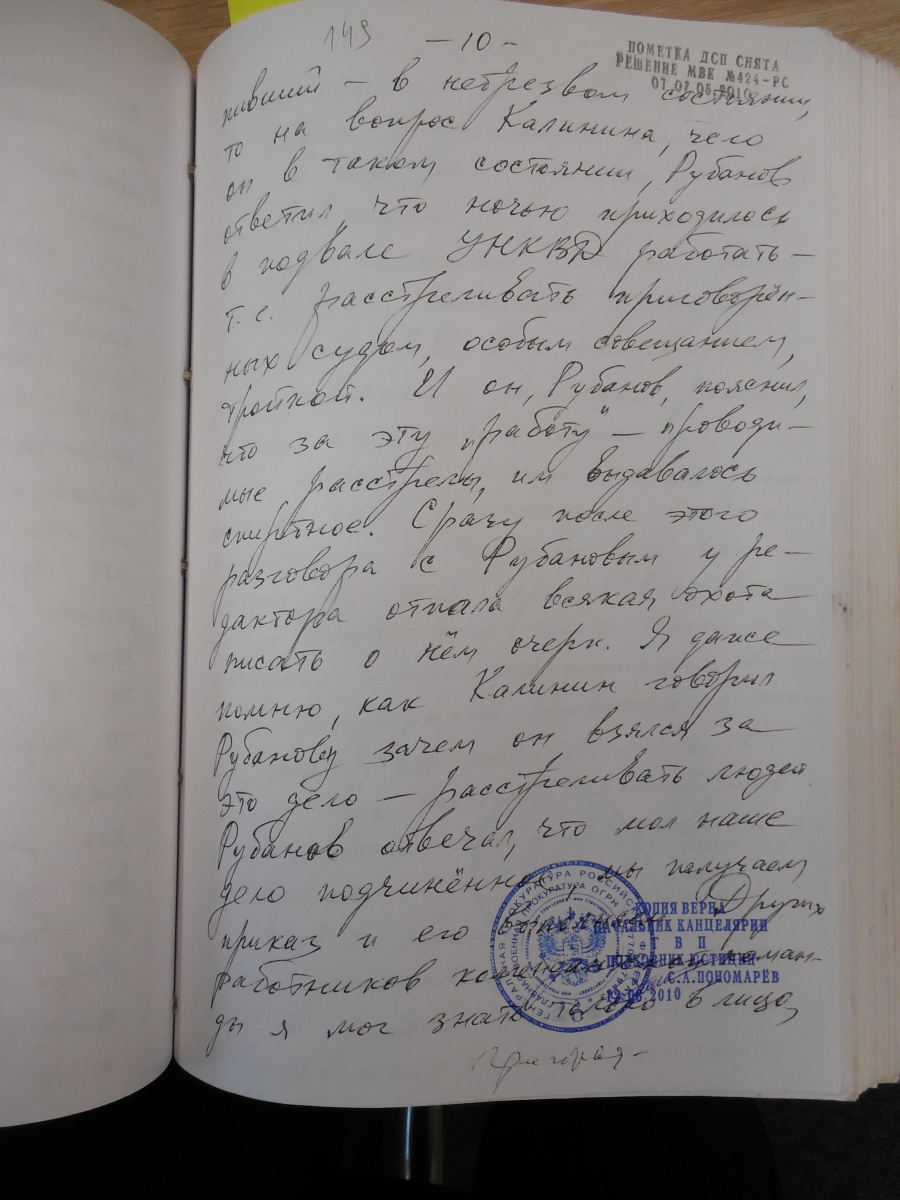 149
-10-
ПОМЕТКА ДСП СНЯТА
РЕШЕНИЕ МВК №424-РС
пивший – в нетрезвом состоянии,
то на вопрос Калинина, чего
он в таком состоянии, Рубанов
ответил, что ночью приходилось
в подвале УНКВД работать –
т.е. расстреливать приговорён-
ных судом, особым совещанием,
тройкой. И он, Рубанов, пояснил,
что за эту „работу" – проводи-
мые расстрелы, им выдавалось
спиртное. Сразу после этого
разговора с Рубановым у ре-
дактора отпала всякая охота
писать о нём очерк. Я даже
помню, как Калинин говорил
Рубанову зачем он взялся за
это дело – расстреливать людей
Рубанов отвечал, что мол наше
дело подчинённое, мы получаем
приказ и его выполняем. Других
работников комендантской коман-
ды я мог знать только в лицо,
КОПИЯ ВЕРНА
НАЧАЛЬНИК КАНЦЕЛЯРИИ
Г В П
ПОЛКОВНИК ЮСТИЦИИ
С.А.ПОНОМАРЁВ